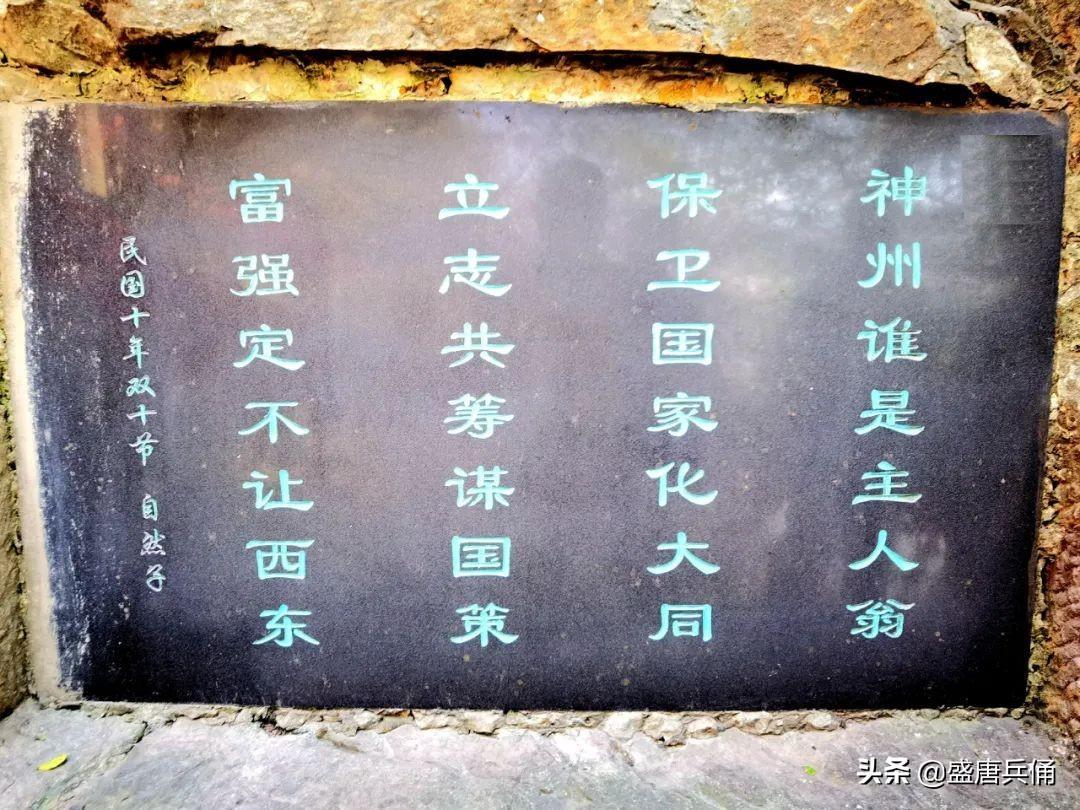 神州谁是主人翁
保卫国家化大同
立志共筹谋国策
富强定不让西东
民国十年双十节 自然子
头条 @盛唐兵俑